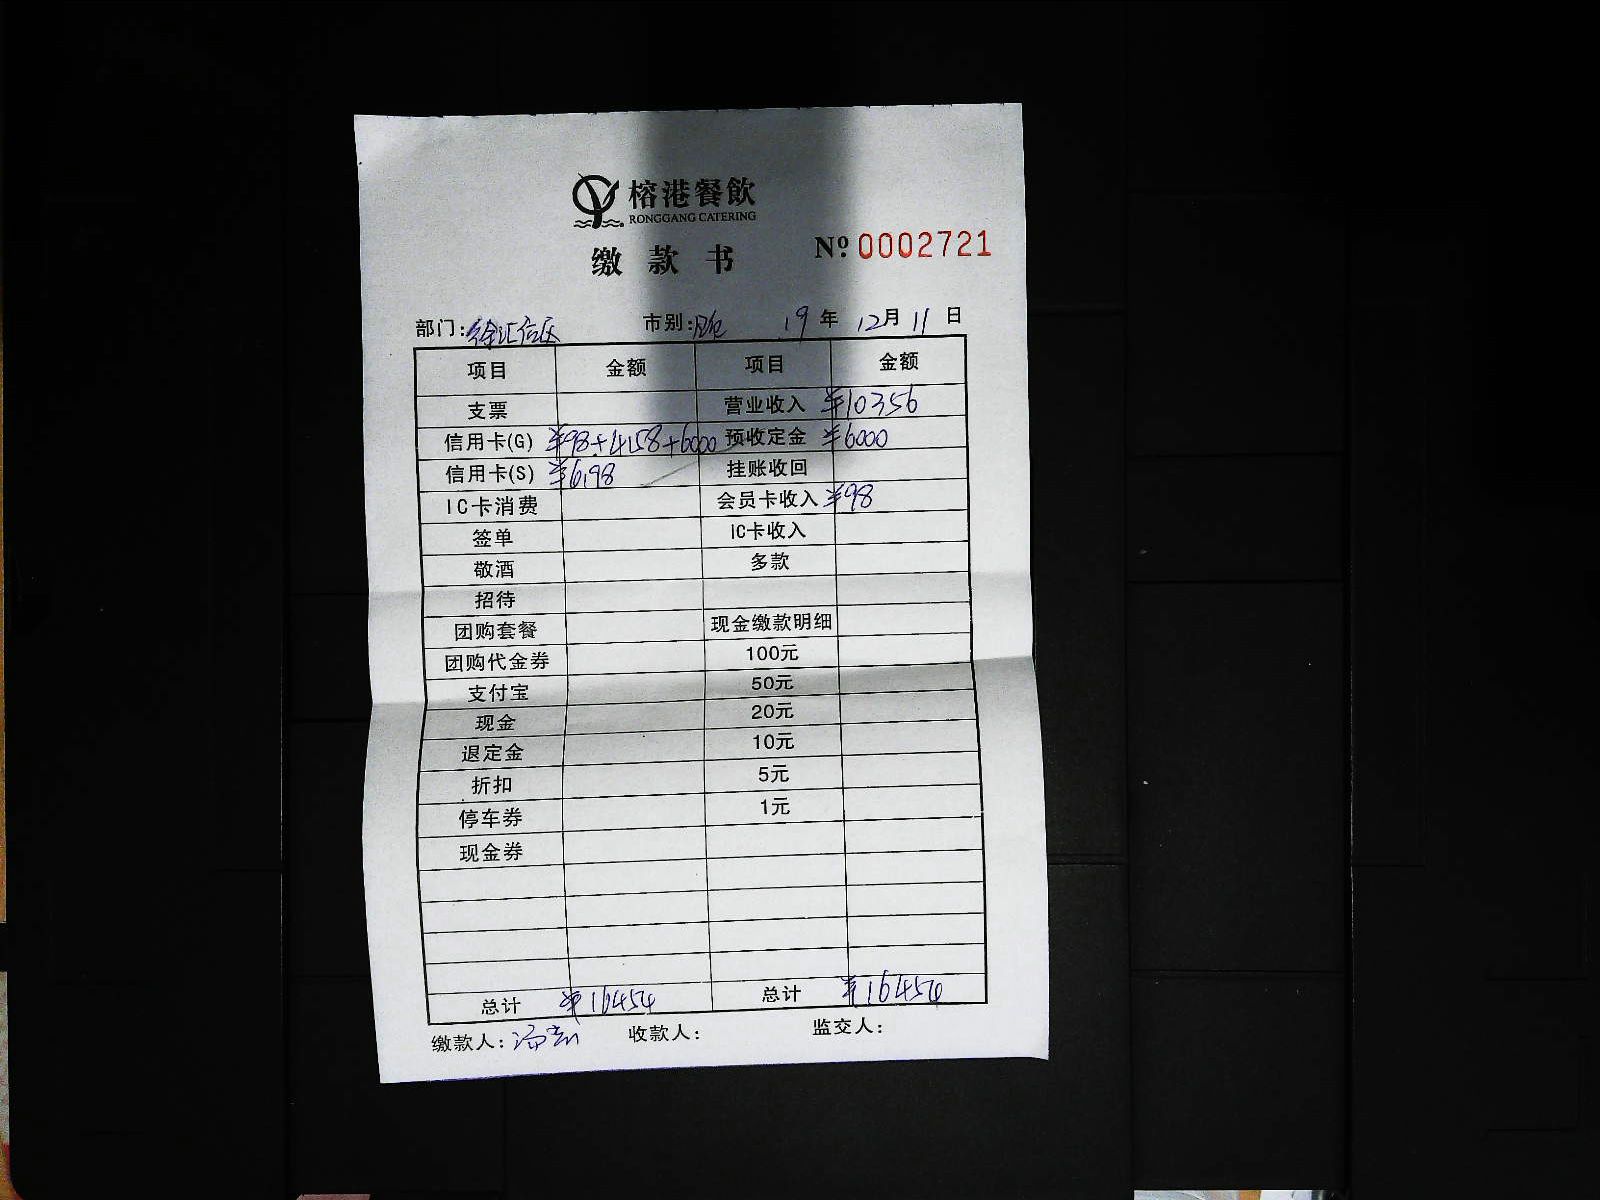 榕港餐飲
RONGGANG CATERING
缴款书 Nº 0002721
部门: 徐汇 市别: 晚 19年 12月 11日
项目 金额 项目 金额
支票 营业收入 ¥10356
信用卡(G) ¥98+4158+6000 预收定金 ¥6000
信用卡(S) ¥6198 挂账收回
IC卡消费 会员卡收入 ¥98
签单 IC卡收入
敬酒 多款
招待
团购套餐 现金缴款明细
团购代金券 100元
支付宝 50元
现金 20元
退定金 10元
折扣 5元
停车券 1元
现金券
总计 ¥16454 总计 ¥16454
缴款人: 收款人: 监交人: